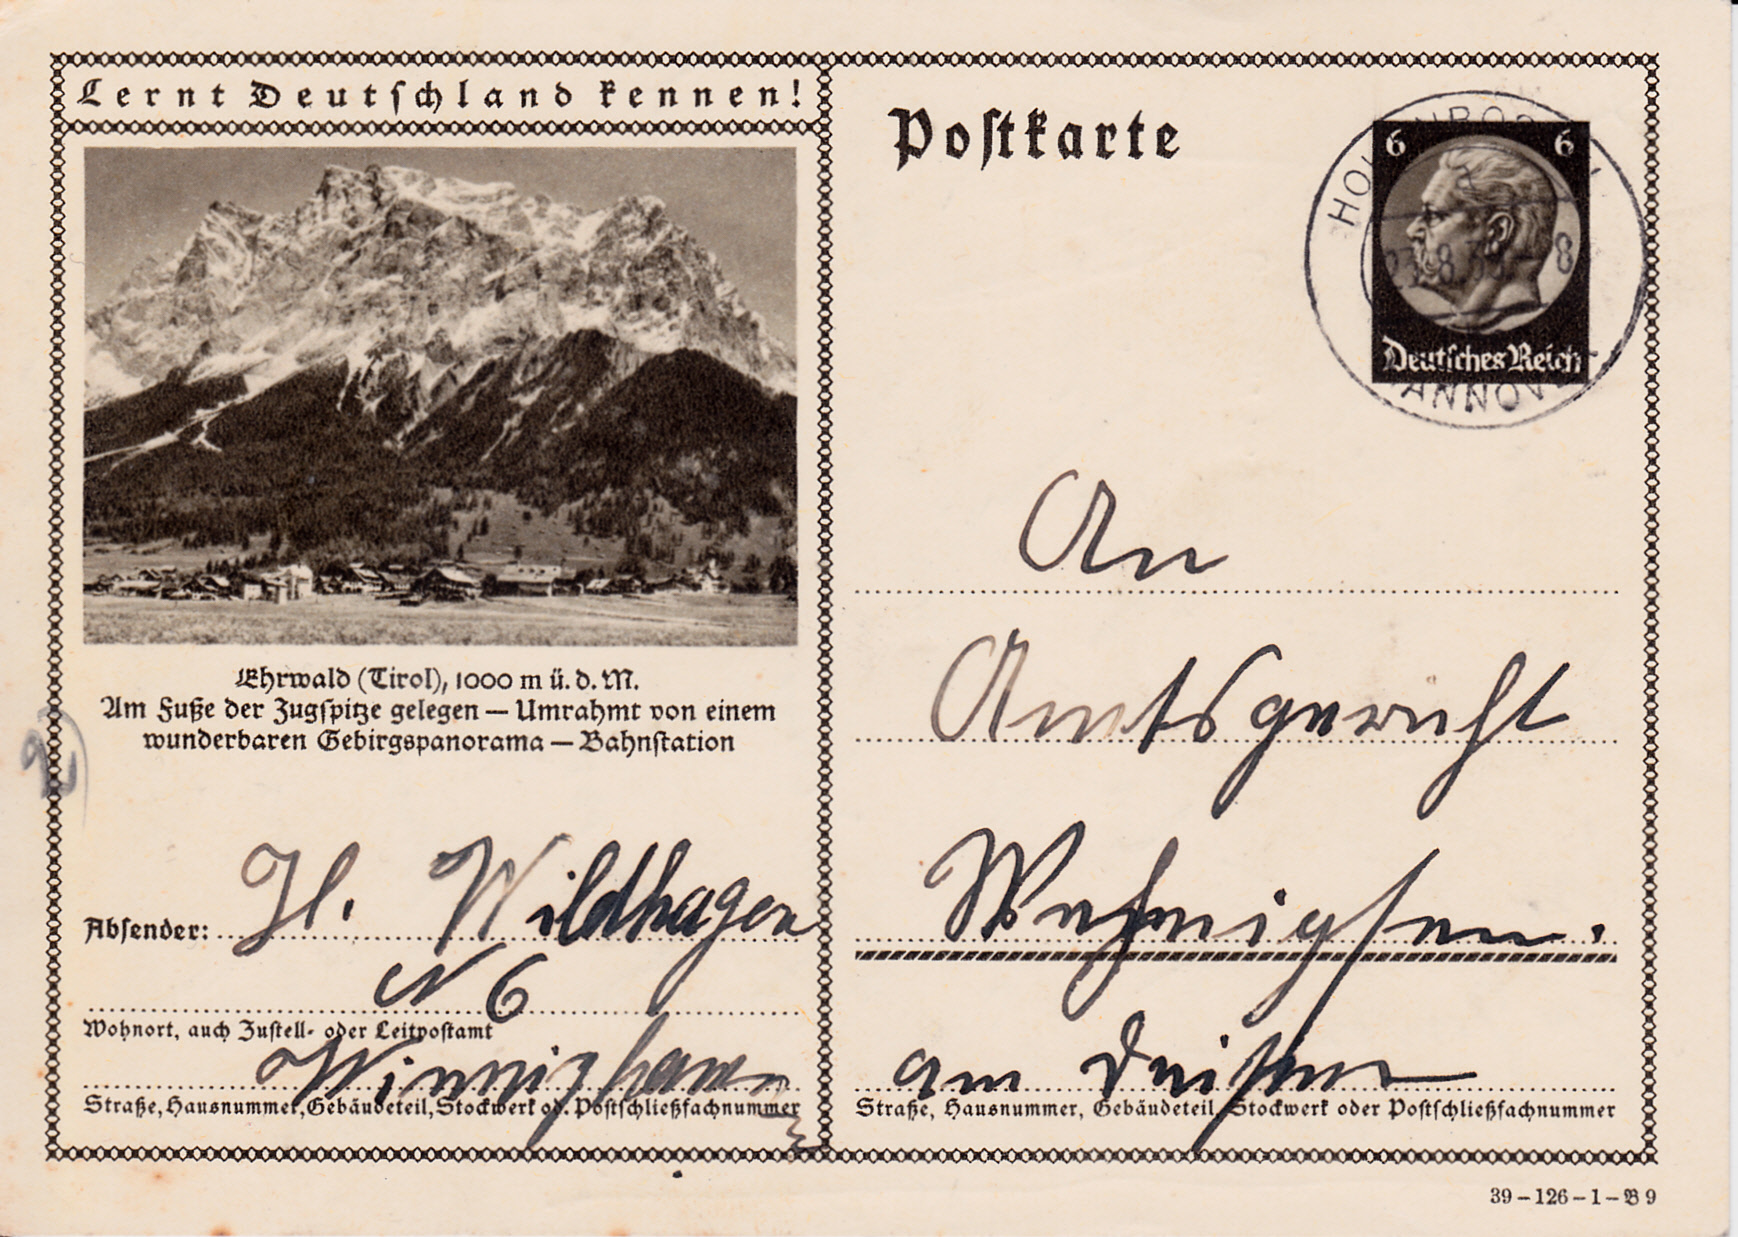 Lernt Deutschland kennen!
Ehrwald (Tirol), 1000 m ü. d. M.
Am Fuße der Zugspitze gelegen — Umrahmt von einem
wunderbaren Gebirgspanorama — Bahnstation
2)
Absender: H. Wildhagen
N 6
Wohnort, auch Zustell- oder Leitpostamt
Winninghausen
Straße, Hausnummer, Gebäudeteil, Stockwerk od. Postschließfachnummer
Postkarte
6 6
Deutsches Reich
An
Amtsgericht
Wennigsen.
am Deister
Straße, Hausnummer, Gebäudeteil, Stockwerk oder Postschließfachnummer
39 – 126 – 1 – B 9